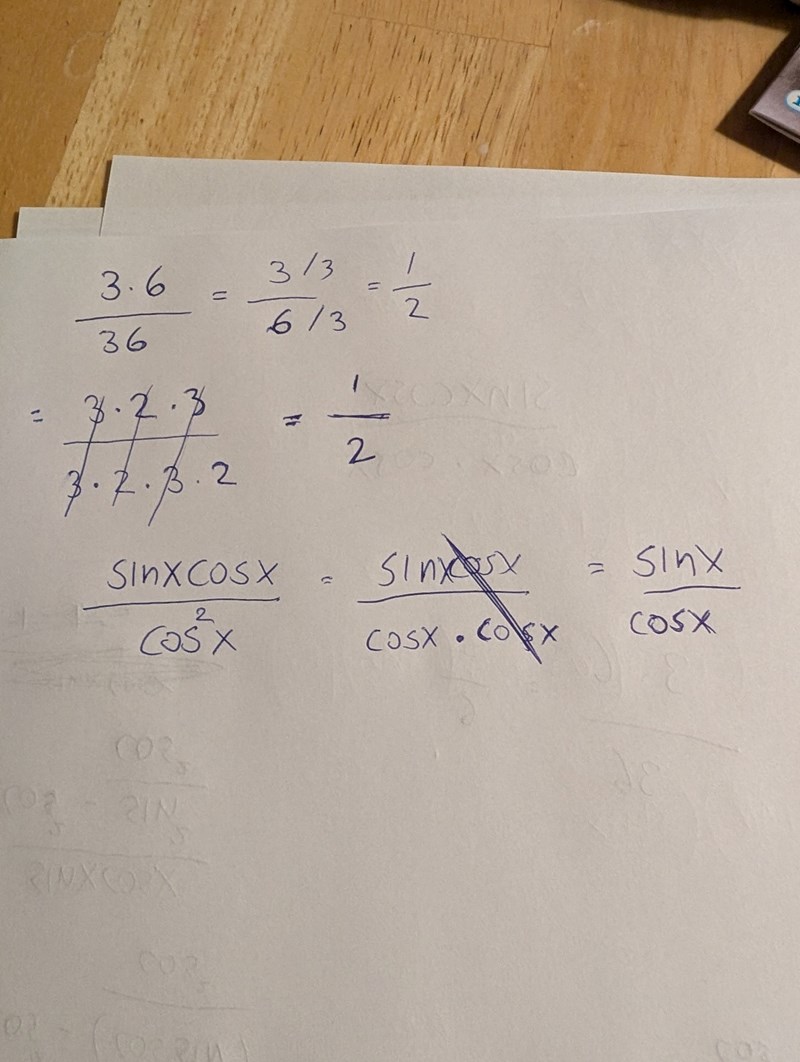 3·6/36 = 3 /3 / 6 /3 = 1/2
= 3·2·3 / 3·2·3·2 = 1/2
sinxcosx / cos²x = sinxcosx / cosx·cosx = sinx / cosx